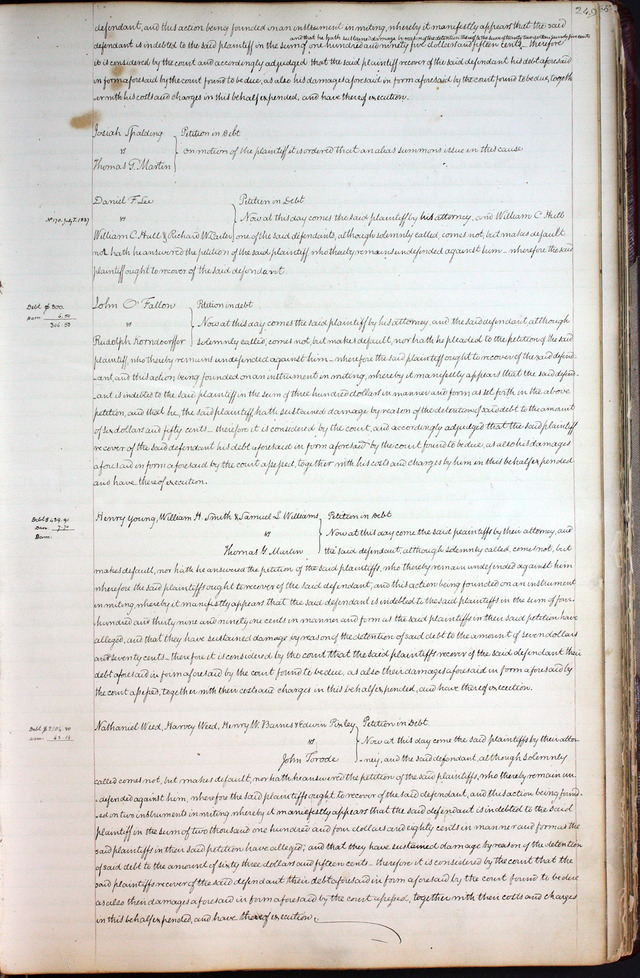 249
defendant, and this action being founded on an instrument in writing, whereby it manifestly appears that the said
defendant is indebted to the said plaintiff in the sum of one hundred and ninety five dollars and fifteen cents – therefore
and that he hath sustained damage by reason of the detention thereof to the sum of
it is considered by the court and accordingly adjudged that the said plaintiff recover of the said defendant his debt aforesaid
in form aforesaid by the court found to be due, as also his damages aforesaid in form aforesaid by the court found to be due, togeth
er with his costs and charges in this behalf expended, and have thereof execution.
Josiah Spalding
vs
Thomas G. Martin
Petition in Debt
on motion of the plaintiff it is ordered that an alias summons issue in this cause
Daniel F. Lee
vs
Petition in Debt
Now at this day comes the said plaintiff by his attorney, and William C. Hull
William C. Hull & Richard W. Carter one of the said defendants, although solemnly called, comes not, but makes default
nor hath he answered the petition of the said plaintiff who thereby remains undefended against him – wherefore the said
plaintiff ought to recover of the said defendant
Debt $300.
Dam 6.50
306.50
John O'Fallon
vs
Rudolph Korndoerffer
Petition in debt
Now at this day comes the said plaintiff by his attorney, and the said defendant although
solemnly called, comes not, but makes default, nor hath he pleaded to the petition of the said
plaintiff, who thereby remains undefended against him – wherefore the said plaintiff ought to recover of the said defend-
-ant, and this action being founded on an instrument in writing, whereby it manifestly appears that the said defend-
-ant is indebted to the said plaintiff in the sum of three hundred dollars in manner and form as set forth in the above
petition, and that he, the said plaintiff hath sustained damage by reason of the detention of said debt to the amount
of six dollars and fifty cents – therefore it is considered by the court, and accordingly adjudged that the said plaintiff
recover of the said defendant his debt aforesaid in form aforesaid by the court found to be due, as also his damages
aforesaid in form aforesaid by the court assessed, together with his costs and charges by him in this behalf expended
and have thereof execution.
Debt $439.91
Dam 7.70
Henry Young, William H. Smith & Samuel L. Williams
vs
Thomas G. Martin
Petition in Debt
Now at this day come the said plaintiffs by their attorney, and
the said defendant, although solemnly called, comes not, but
makes default, nor hath he answered the petition of the said plaintiffs, who thereby remain undefended against him
wherefore the said plaintiffs ought to recover of the said defendant, and this action being founded on an instrument
in writing, whereby it manifestly appears that the said defendant is indebted to the said plaintiffs in the sum of four
hundred and thirty nine and ninety one cents in manner and form as the said plaintiffs in their said petition have
alleged, and that they have sustained damage by reason of the detention of said debt to the amount of seven dollars
and seventy cents – therefore it is considered by the court that the said plaintiffs recover of the said defendant their
debt aforesaid in form aforesaid by the court found to be due, as also their damages aforesaid in form aforesaid by
the court assessed, together with their costs and charges in this behalf expended, and have thereof execution.
Debt $2104.80
Dam 63.15
Nathaniel Weed, Harvey Weed, Henry W. Baines & Edwin Pixley
vs
John Torode
Petition in Debt
Now at this day come the said plaintiffs by their attor
ney, and the said defendant, although solemnly
called comes not, but makes default, nor hath he answered the petition of the said plaintiffs, who thereby remain un
defended against him, wherefore the said plaintiffs ought to recover of the said defendant, and this action being found
ed on two instruments in writing whereby it manifestly appears that the said defendant is indebted to the said
plaintiff in the sum of two thousand one hundred and four dollars and eighty cents in manner and form as the
said plaintiffs in their said petition have alleged; and that they have sustained damage by reason of the detention
of said debt to the amount of sixty three dollars and fifteen cents – therefore it is considered by the court that the
said plaintiffs recover of the said defendant their debt aforesaid in form aforesaid by the court found to be due
as also their damages aforesaid in form aforesaid by the court assessed, together with their costs and charges
in this behalf expended, and have thereof execution.